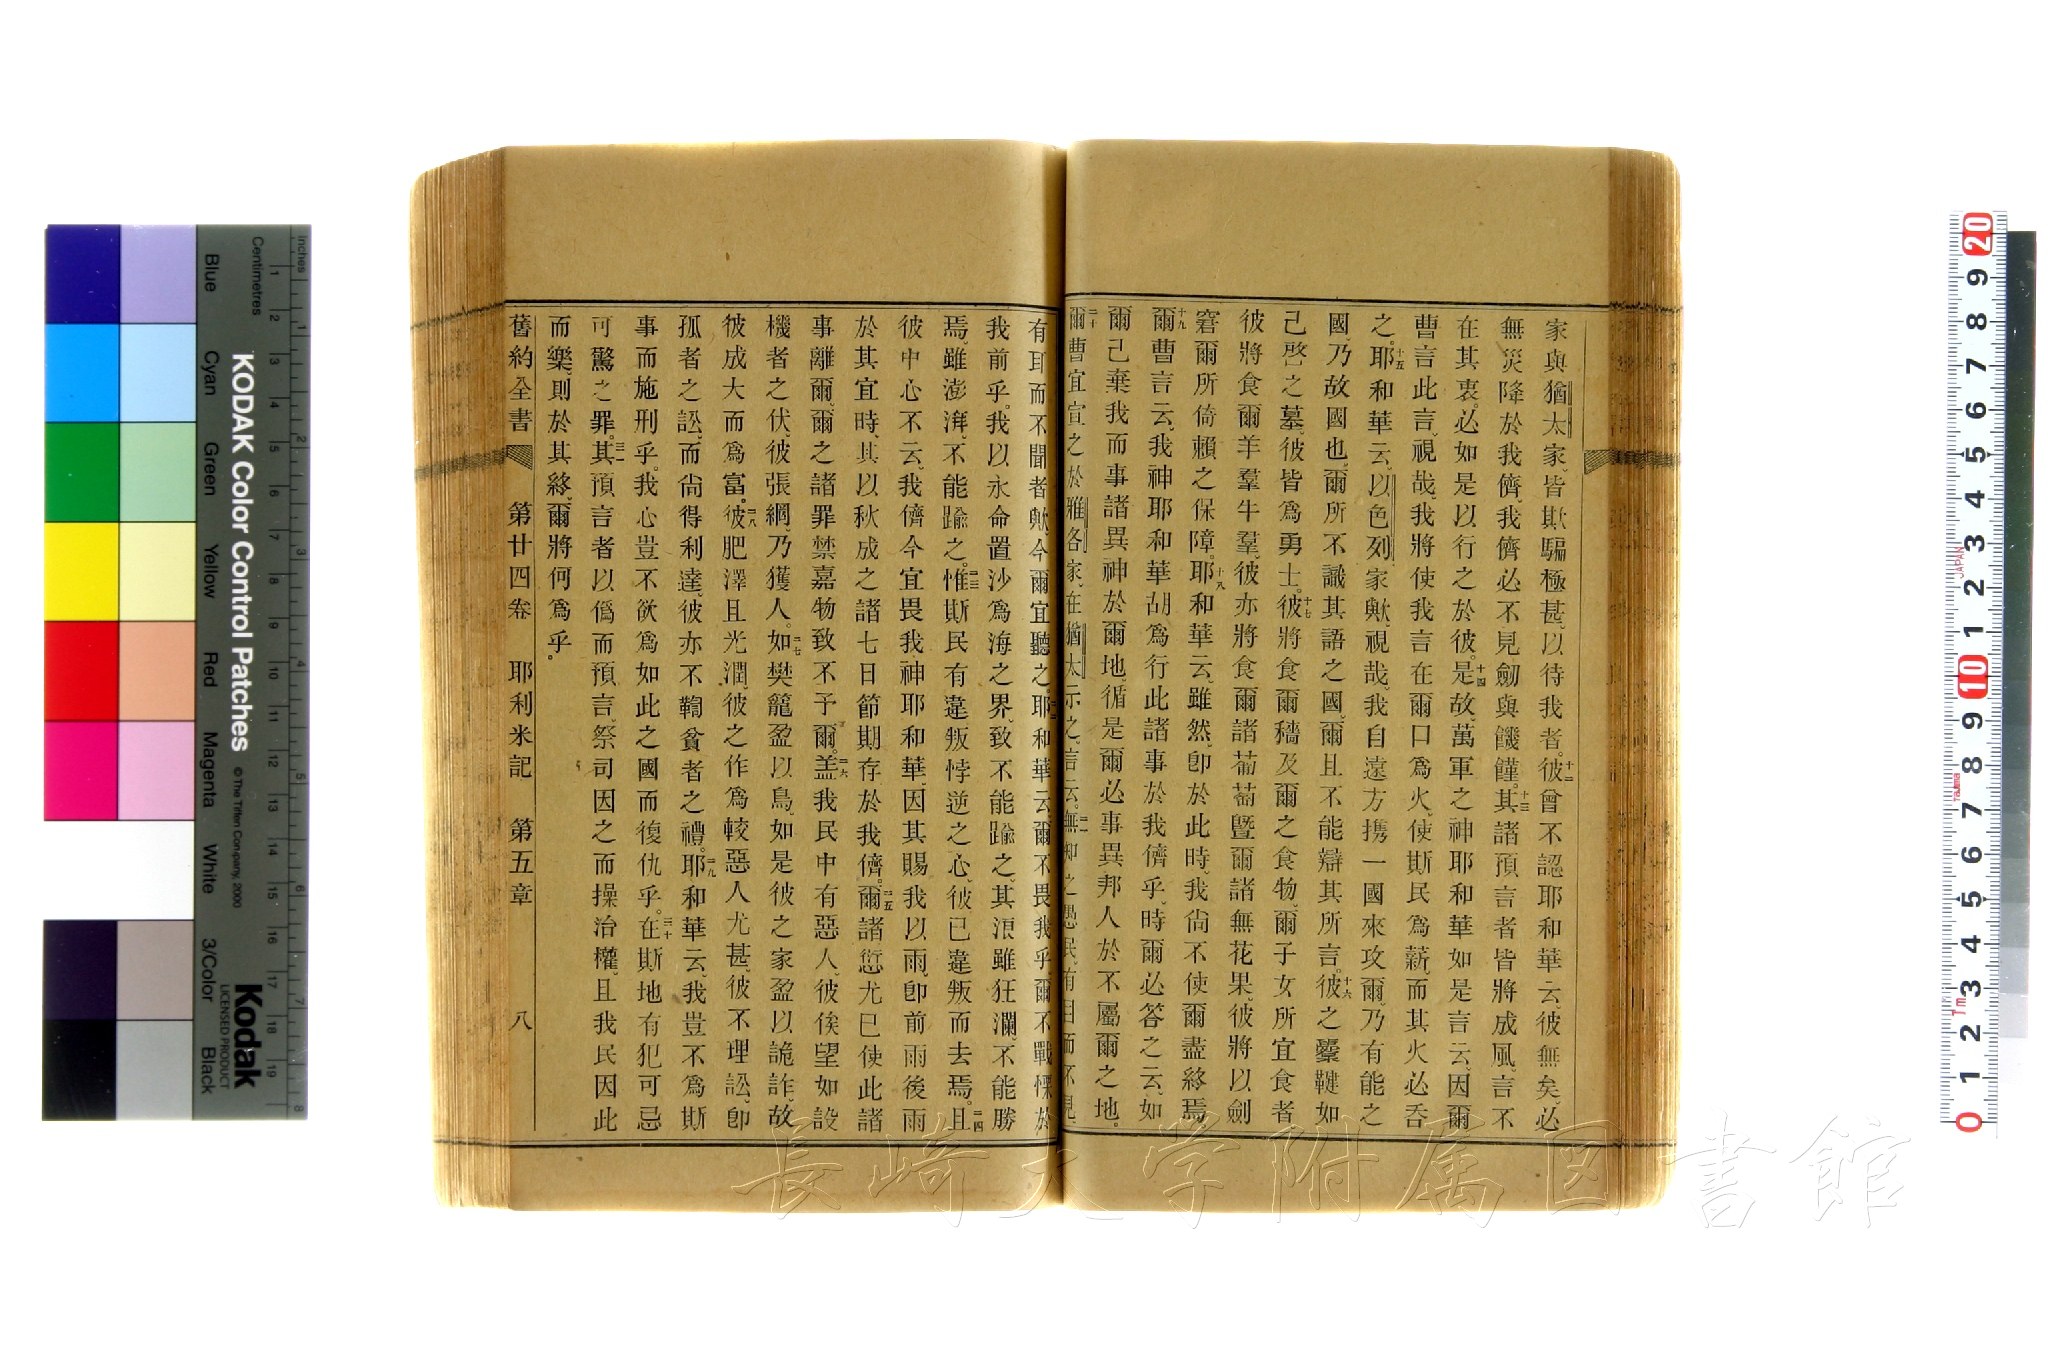 家與猶太家、皆欺騙極甚、以待我者。十二彼曾不認耶和華云、彼無矣、必
無災降於我儕、我儕必不見劒與饑饉。十三其諸預言者皆將成風、言不
在其衷、必如是以行之於彼。十四是故、萬軍之神耶和華如是言云、因爾
曹言此言、視哉、我將使我言在爾口爲火、使斯民爲薪、而其火必吞
之。十五耶和華云、以色列家歟、視哉、我自遠方携一國來攻爾、乃有能之
國、乃故國也、爾所不識其語之國、爾且不能辯其所言。十六彼之櫜鞬如
己啓之墓、彼皆爲勇士。十七彼將食爾穡及爾之食物、爾子女所宜食者
彼將食爾羊羣牛羣、彼亦將食爾諸葡萄曁爾諸無花果、彼將以劍
窘爾所倚賴之保障。十八耶和華云、雖然、卽於此時、我尙不使爾盡終焉
十九爾曹言云、我神耶和華胡爲行此諸事於我儕乎、時爾必答之云、如
爾己棄我而事諸異神於爾地、循是爾必事異邦人於不屬爾之地。
二十爾曹宜宣之於雅各家、在猶太示之、言云。二一無知之愚民、有目而不見、
有耳而不聞者歟、今爾宜聽之。二二耶和華云、爾不畏我乎、爾不戰慄於
我前乎。我以永命置沙爲海之界、致不能踰之、其浪雖狂瀾、不能勝
焉、雖澎湃、不能踰之。二三惟斯民有違叛悖逆之心、彼已違叛而去焉。二四且
彼中心不云、我儕今宜畏我神耶和華、因其賜我以雨、卽前雨後雨
於其宜時、其以秋成之諸七日節期存於我儕。二五爾諸愆尤已使此諸
事離爾、爾之諸罪禁嘉物致不予爾。二六盖我民中有惡人、彼俟望如設
機者之伏、彼張網、乃獲人。二七如樊籠盈以鳥、如是彼之家盈以詭詐、故
彼成大而爲富。二八彼肥澤且光潤、彼之作爲較惡人尤甚、彼不理訟、卽
孤者之訟、而尙得利達、彼亦不鞫貧者之禮。二九耶和華云、我豈不爲斯
事而施刑乎。我心豈不欲爲如此之國而復仇乎。三十在斯地有犯可忌
可驚之罪。三一其預言者以僞而預言、祭司因之而操治權、且我民因此
而樂、則於其終、爾將何爲乎。
舊約全書 第廿四卷 耶利米記 第五章 八
長崎大学附属図書館
KODAK Color Control Patches
© The Tiffen Company, 2000
Kodak
LICENSED PRODUCT
Inches
Centimetres
Blue
Cyan
Green
Yellow
Red
Magenta
White
3/Color
Black
JAPAN